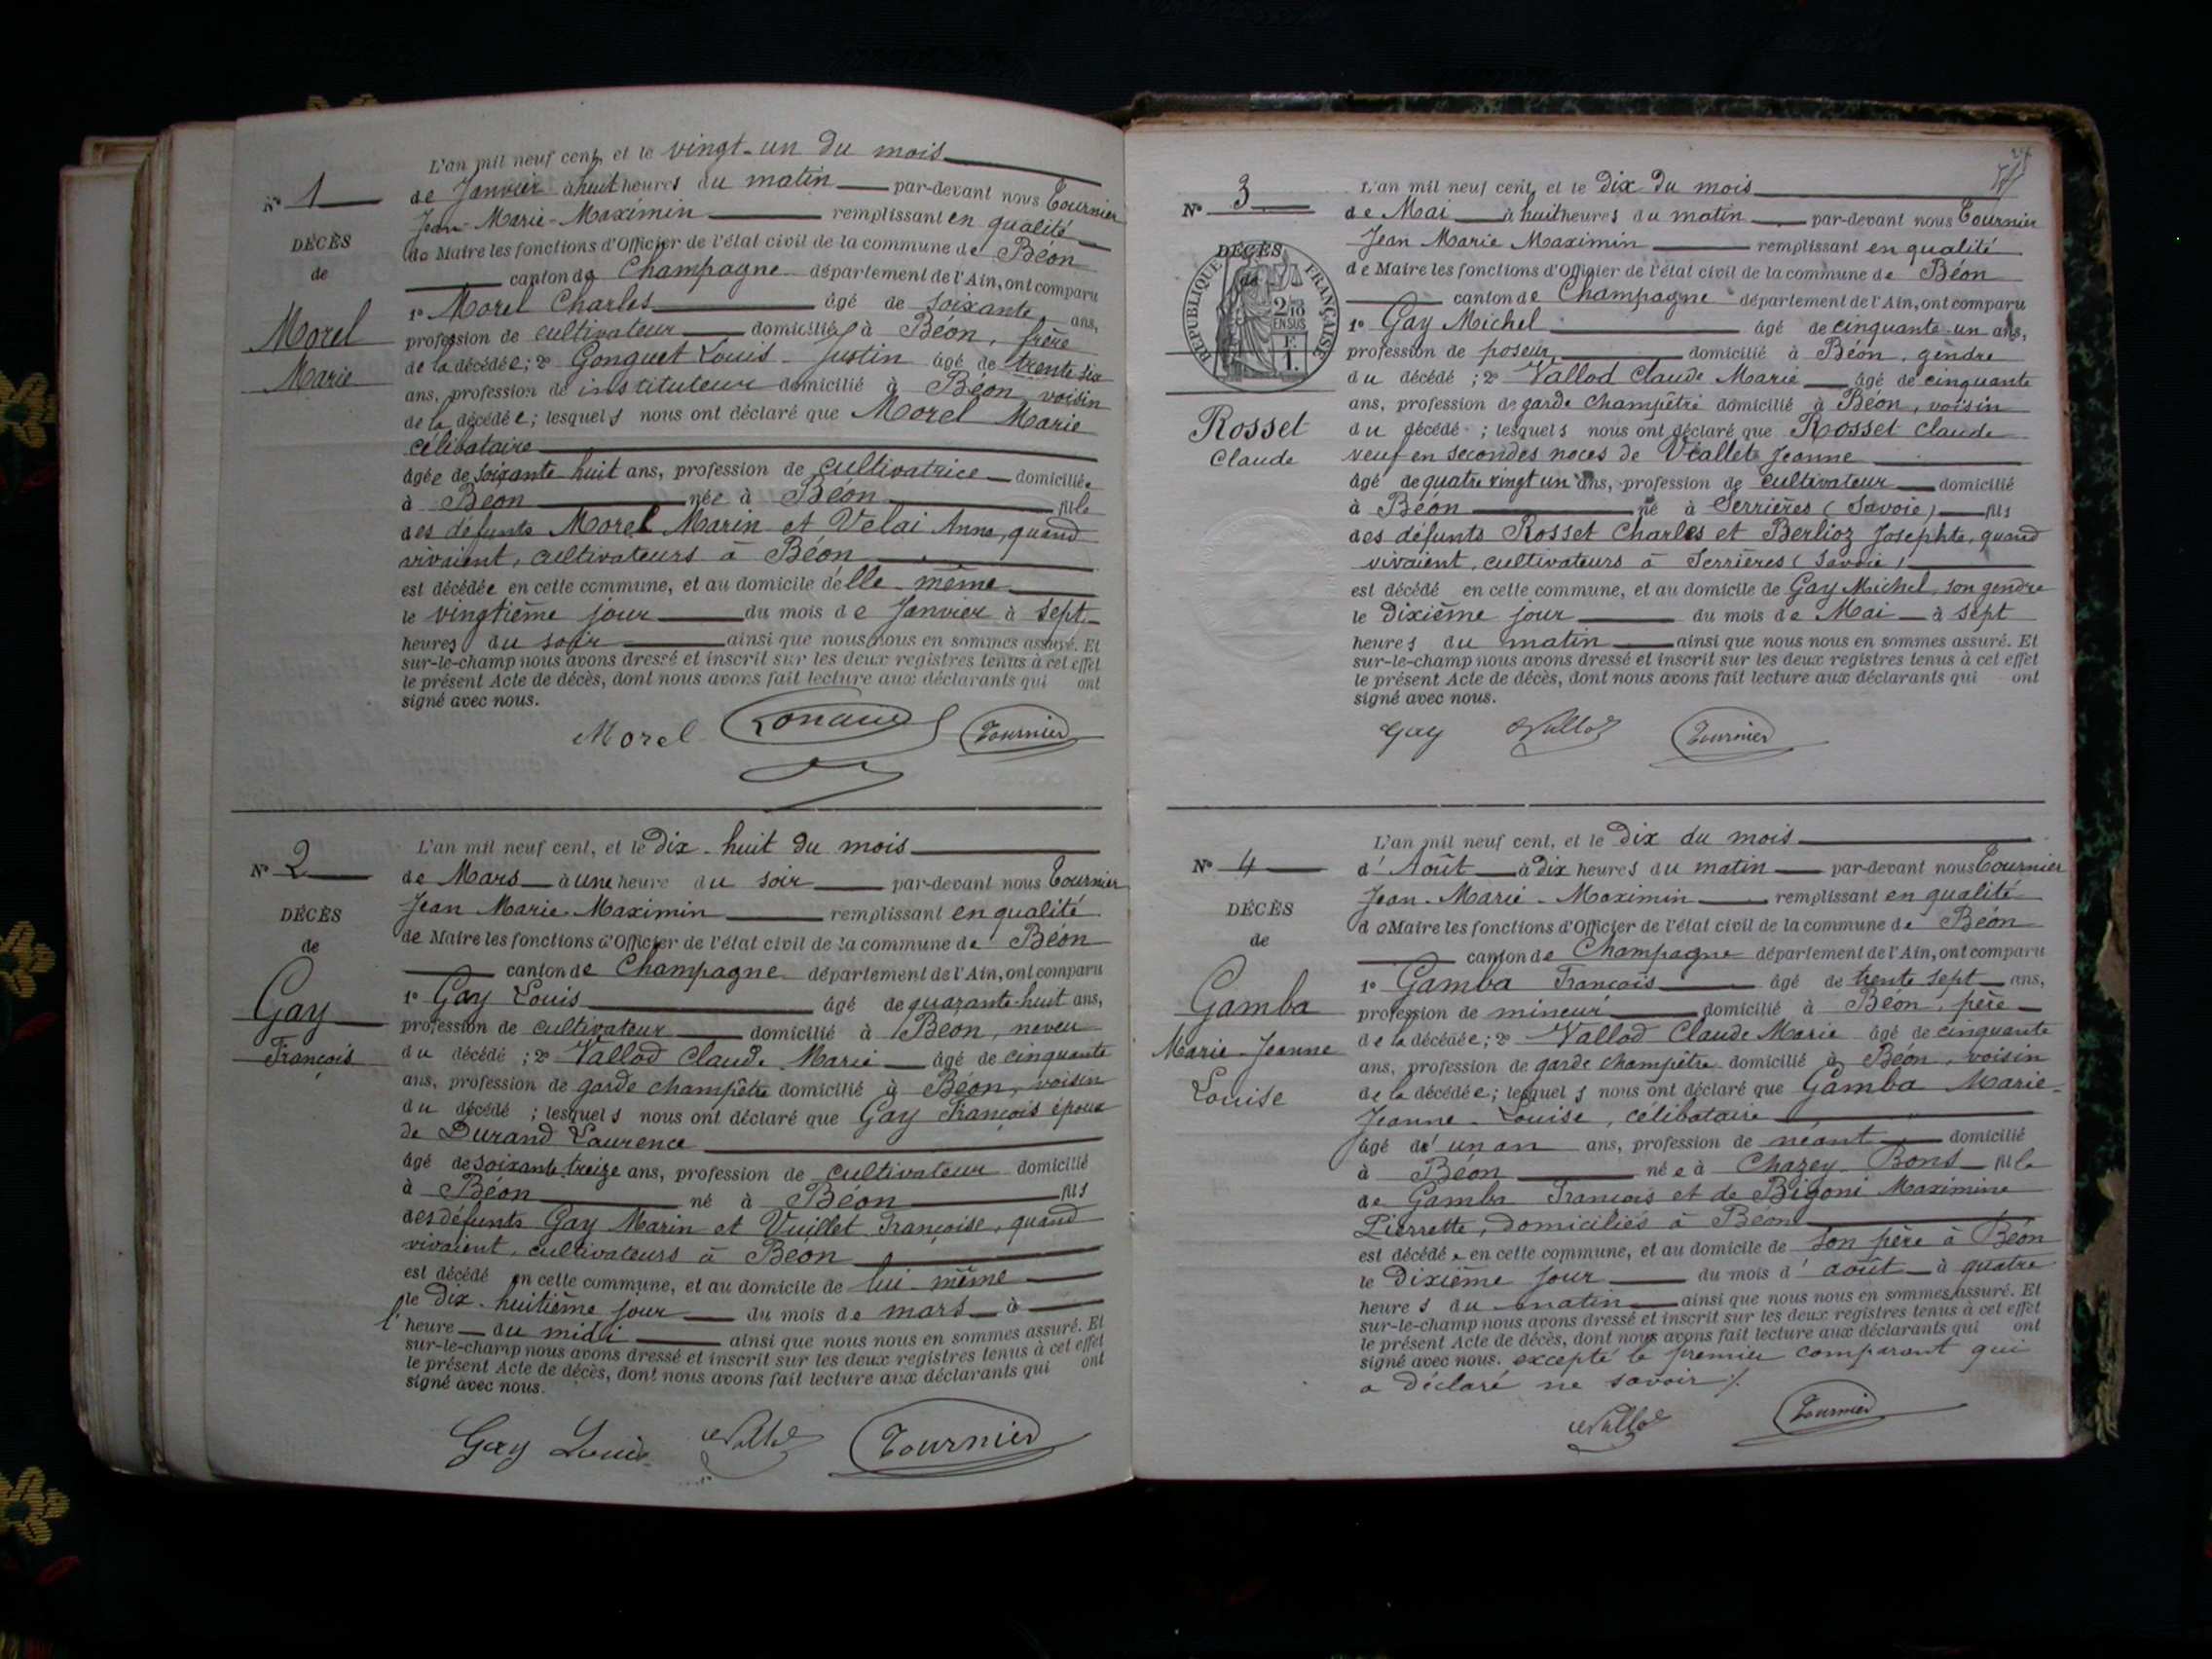 L'an mil neuf cent, et le vingt-un du mois
N° 1
de Janvier à huit heures du matin par-devant nous Tournier
Jean-Marie-Maximin remplissant en qualité
DÉCÈS
de Maire les fonctions d'Officier de l'état civil de la commune de Béon
de
canton de Champagne département de l'Ain, ont comparu
1° Morel Charles âgé de soixante ans,
Morel
profession de cultivateur domicilié à Béon, frère
de la décédée; 2° Louis-Justin âgé de trente six
Marie
ans, profession de instituteur domicilié à Béon, voisin
de la décédée; lesquels nous ont déclaré que Morel Marie
célibataire
âgée de soixante huit ans, profession de cultivatrice domiciliée
à Béon née à Béon fille
des défunts Morel Marin et Velai Anne, quand
vivaient, cultivateurs à Béon
est décédée en cette commune, et au domicile d'elle-même
le vingtième jour du mois de Janvier à sept
heures du soir ainsi que nous nous en sommes assuré. Et
sur-le-champ nous avons dressé et inscrit sur les deux registres tenus à cet effet
le présent Acte de décès, dont nous avons fait lecture aux déclarants qui ont
signé avec nous.
Morel Tournier
L'an mil neuf cent, et le dix-huit du mois
N° 2
de Mars à une heure du soir par-devant nous Tournier
Jean Marie-Maximin remplissant en qualité
DÉCÈS
de Maire les fonctions d'Officier de l'état civil de la commune de Béon
de
canton de Champagne département de l'Ain, ont comparu
Gay
1° Gay Louis âgé de quarante-huit ans,
profession de cultivateur domicilié à Béon, neveu
François
du décédé ; 2° Vallod Claude Marie âgé de cinquante
ans, profession de garde champêtre domicilié à Béon, voisin
du décédé ; lesquels nous ont déclaré que Gay François époux
de Durand Laurence
âgé de soixante treize ans, profession de cultivateur domicilié
à Béon né à Béon fils
des défunts Gay Marin et Vuillet Françoise, quand
vivaient, cultivateurs à Béon
est décédé en cette commune, et au domicile de lui-même
le dix-huitième jour du mois de mars à
l'heure du midi ainsi que nous nous en sommes assuré. Et
sur-le-champ nous avons dressé et inscrit sur les deux registres tenus à cet effet
le présent Acte de décès, dont nous avons fait lecture aux déclarants qui ont
signé avec nous.
Gay Louis Vallod Tournier
L'an mil neuf cent, et le dix du mois
N° 3
de Mai à huit heures du matin par-devant nous Tournier
Jean Marie Maximin remplissant en qualité
DÉCÈS
de
RÉPUBLIQUE FRANÇAISE
2/10
EN SUS
de Maire les fonctions d'Officier de l'état civil de la commune de Béon
canton de Champagne département de l'Ain, ont comparu
1° Gay Michel âgé de cinquante-un ans,
profession de poseur domicilié à Béon, gendre
du décédé ; 2° Vallod Claude Marie âgé de cinquante
ans, profession de garde champêtre domicilié à Béon, voisin
Rosset
du décédé ; lesquels nous ont déclaré que Rosset Claude
Claude
veuf en secondes noces de Viallet Jeanne
âgé de quatre vingt un ans, profession de cultivateur domicilié
à Béon né à Serrières (Savoie) fils
des défunts Rosset Charles et Berlioz Josephte, quand
vivaient, cultivateurs à Serrières (Savoie)
est décédé en cette commune, et au domicile de Gay Michel, son gendre
le dixième jour du mois de Mai à sept
heures du matin ainsi que nous nous en sommes assuré. Et
sur-le-champ nous avons dressé et inscrit sur les deux registres tenus à cet effet
le présent Acte de décès, dont nous avons fait lecture aux déclarants qui ont
signé avec nous.
Gay Vallod Tournier
L'an mil neuf cent, et le dix du mois
N° 4
d'Août à dix heures du matin par-devant nous Tournier
Jean-Marie-Maximin remplissant en qualité
DÉCÈS
de Maire les fonctions d'Officier de l'état civil de la commune de Béon
de
canton de Champagne département de l'Ain, ont comparu
1° Gamba François âgé de trente sept ans,
Gamba
profession de mineur domicilié à Béon, père
de la décédée; 2° Vallod Claude Marie âgé de cinquante
Marie-Jeanne
ans, profession de garde champêtre domicilié à Béon, voisin
Louise
de la décédée; lesquels nous ont déclaré que Gamba Marie-
Jeanne-Louise, célibataire
âgé d'un an ans, profession de néant domicilié
à Béon née à Chazey-Bons fille
de Gamba François et de Bigoni Maximine
Pierrette, domiciliés à Béon
est décédée en cette commune, et au domicile de son père à Béon
le dixième jour du mois d'août à quatre
heures du matin ainsi que nous nous en sommes assuré. Et
sur-le-champ nous avons dressé et inscrit sur les deux registres tenus à cet effet
le présent Acte de décès, dont nous avons fait lecture aux déclarants qui ont
signé avec nous. excepté le premier comparant qui
a déclaré ne savoir
Vallod Tournier